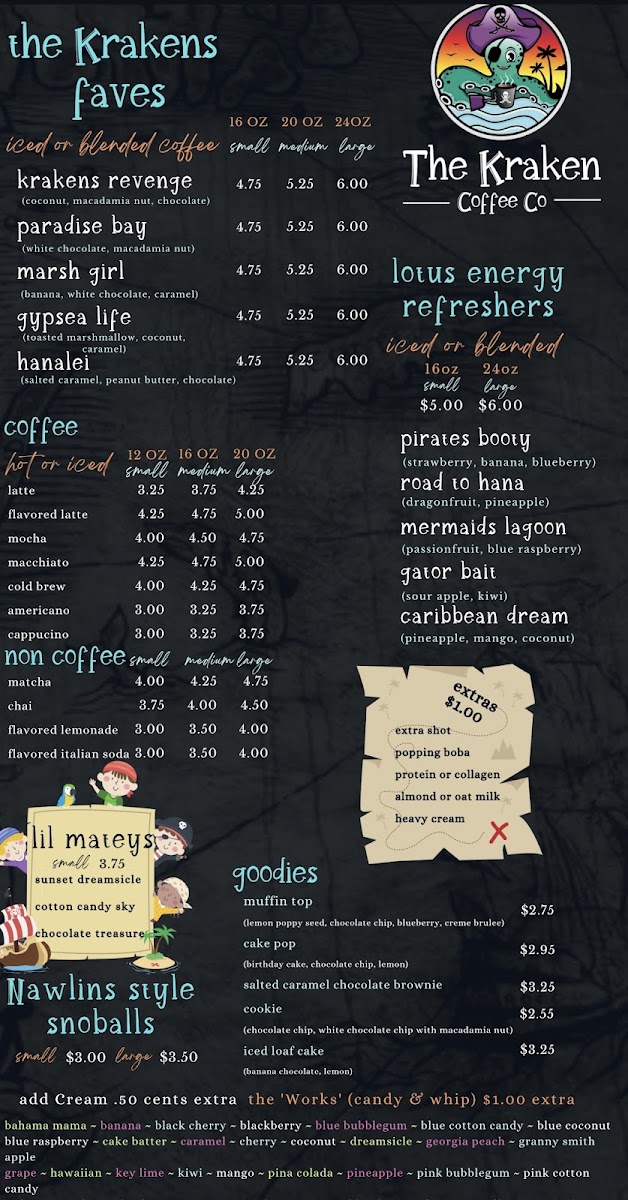 the Krakens
faves
16 OZ 20 OZ 24OZ
iced or blended coffee small medium large
krakens revenge 4.75 5.25 6.00
(coconut, macadamia nut, chocolate)
paradise bay 4.75 5.25 6.00
(white chocolate, macadamia nut)
marsh girl 4.75 5.25 6.00
(banana, white chocolate, caramel)
gypsea life 4.75 5.25 6.00
(toasted marshmallow, coconut,
caramel)
hanalei 4.75 5.25 6.00
(salted caramel, peanut butter, chocolate)
The Kraken
Coffee Co
lotus energy
refreshers
iced or blended
16oz 24oz
small large
$5.00 $6.00
pirates booty
(strawberry, banana, blueberry)
road to hana
(dragonfruit, pineapple)
mermaids lagoon
(passionfruit, blue raspberry)
gator bait
(sour apple, kiwi)
caribbean dream
(pineapple, mango, coconut)
coffee
hot or iced 12 OZ 16 OZ 20 OZ
small medium large
latte 3.25 3.75 4.25
flavored latte 4.25 4.75 5.00
mocha 4.00 4.50 4.75
macchiato 4.25 4.75 5.00
cold brew 4.00 4.25 4.75
americano 3.00 3.25 3.75
cappucino 3.00 3.25 3.75
non coffee small medium large
matcha 4.00 4.25 4.75
chai 3.75 4.00 4.50
flavored lemonade 3.00 3.50 4.00
flavored italian soda 3.00 3.50 4.00
extras
$1.00
extra shot
popping boba
protein or collagen
almond or oat milk
heavy cream
lil mateys
small 3.75
sunset dreamsicle
cotton candy sky
chocolate treasure
goodies
muffin top $2.75
(lemon poppy seed, chocolate chip, blueberry, creme brulee)
cake pop $2.95
(birthday cake, chocolate chip, lemon)
salted caramel chocolate brownie $3.25
cookie $2.55
(chocolate chip, white chocolate chip with macadamia nut)
iced loaf cake $3.25
(banana chocolate, lemon)
Nawlins style
snoballs
small $3.00 large $3.50
add Cream .50 cents extra the 'Works' (candy & whip) $1.00 extra
bahama mama ~ banana ~ black cherry ~ blackberry ~ blue bubblegum ~ blue cotton candy ~ blue coconut
blue raspberry ~ cake batter ~ caramel ~ cherry ~ coconut ~ dreamsicle ~ georgia peach ~ granny smith
apple
grape ~ hawaiian ~ key lime ~ kiwi ~ mango ~ pina colada ~ pineapple ~ pink bubblegum ~ pink cotton
candy